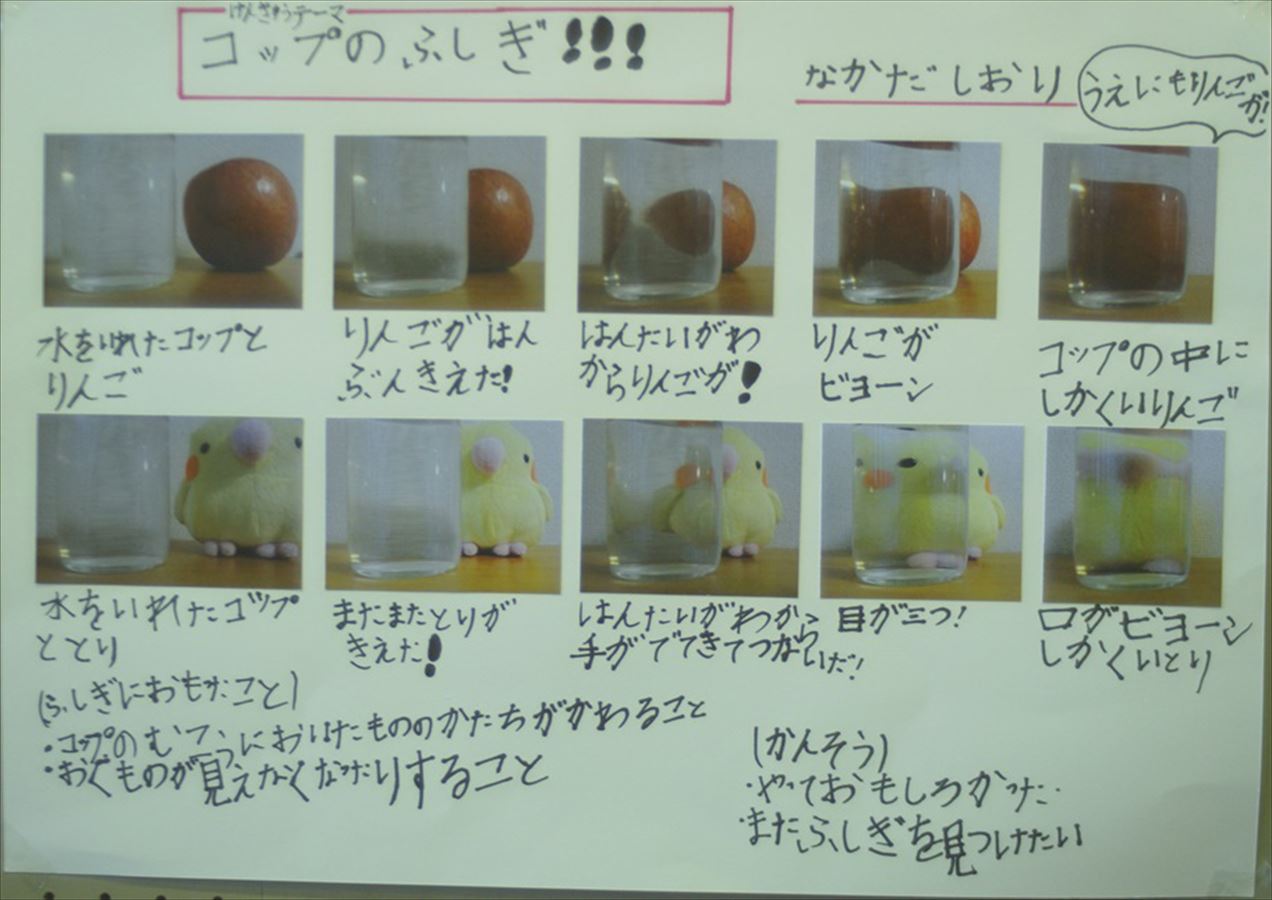 けんきゅうテーマ
コップのふしぎ!!!
なかだしおり
うえにもりんご
が!
水をいれたコップと
りんご
りんごがはん
ぶんきえた!
はんたいがわ
からりんごが!
りんごが
ビヨーン
コップの中に
しかくいりんご
水をいれたコップ
ととり
まだまたとりが
きえた!
はんたいがわから
手がでてきてつながいだ!
目が三つ!
口がビヨーン
しかくいとり
(ふしぎにおもたこと)
・コップのむこうにおいたもののかたちがかわること
・おくものが見えなくなったりすること
(かんそう)
・やっておもしろかった.
・またふしぎを見つけたい